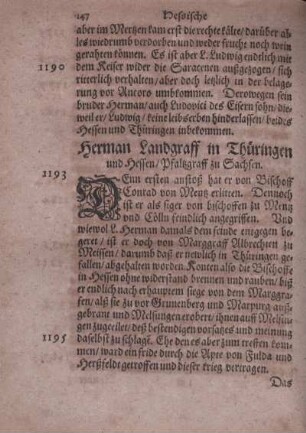 147 Hessische
aber im Mertzen kam erst die rechte kälte / darüber ab=
les wiedrumb verdorben und weder frucht noch wein
gerahten können. Es ist aber L. Ludwig endtlich mit
1190 dem Keiser wider die Saracenen außgezogen / sich
ritterlich verhalten / aber doch letzlich in der belage=
rung vor Ancoro umbkommen. Derowegen sein
bruder Herman / auch Ludovici des Eisern sohn / die=
weil er / Ludwig / keine leibserben hinderlassen / beides
Hessen und Thüringen inbekommen.
Herman Landgraff in Thüringen
und Hessen / Pfaltzgraff zu Sachsen.
1193 Eun ersten anstoß hat er von Bischoff
Conrad von Mentz erlitten. Dennoch
ist er als siger von bischoffen zu Mentz
und Cölln feindlich angegriffen. Und
wiewol L. Herman damals dem feinde entgegen be=
geret / ist er doch von Marggraff Albrechten zu
Meissen / darumb daß er newlich in Thüringen ge=
fallen / abgehalten worden. Konten also die Bischoffe
in Hessen ohne widerstand brennen und rauben / biß
er endlich nach erhaltetem siege von dem Marggra=
fen / alß sie zu vor Grunenberg und Marpurg auß=
gebrant und Melsungen erobert / ihnen auff Melsun=
gen zugeeilet / deß bestendigen vorsatzes und meinung
1195 daselbst zu schlagen. Ehe denn es aber zum treffen kom=
men / ward ein fride durch die Äpte von Fulda und
Herßfeldt getroffen und dieser krieg vertragen.
Das